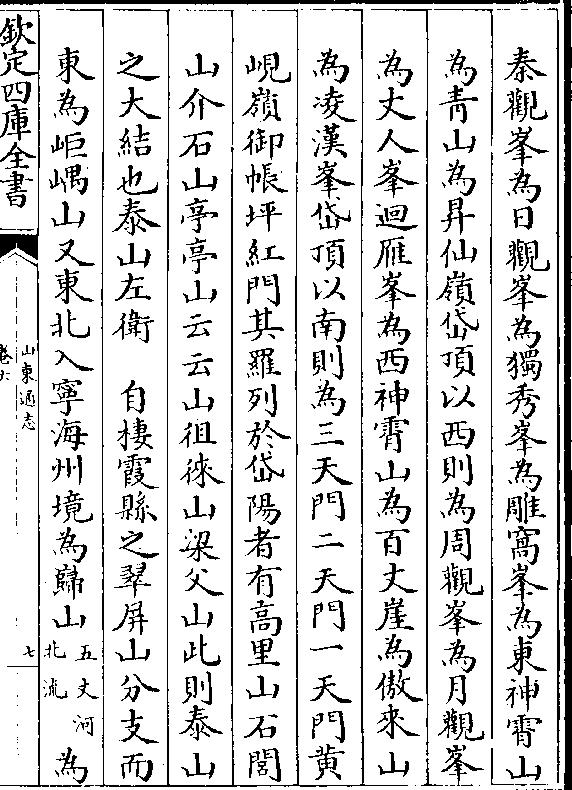 秦觀峯為日觀峯為獨秀峯為雕窩峯為東神霄山
為青山為昇仙嶺岱頂以西則為周觀峯為月觀峯
為丈人峯迴雁峯為西神霄山為百丈崖為傲來山
為凌漢峯岱頂以南則為三天門二天門一天門黃
峴嶺御帳坪紅門其羅列於岱陽者有高里山石閭
山介石山亭亭山云云山徂徠山梁父山此則泰山
之大結也泰山左衛　自棲霞縣之翠屏山分支而
東為岠嵎山又東北入寧海州境為歸山五丈河北流為
欽定四庫全書
山東通志
卷六
七